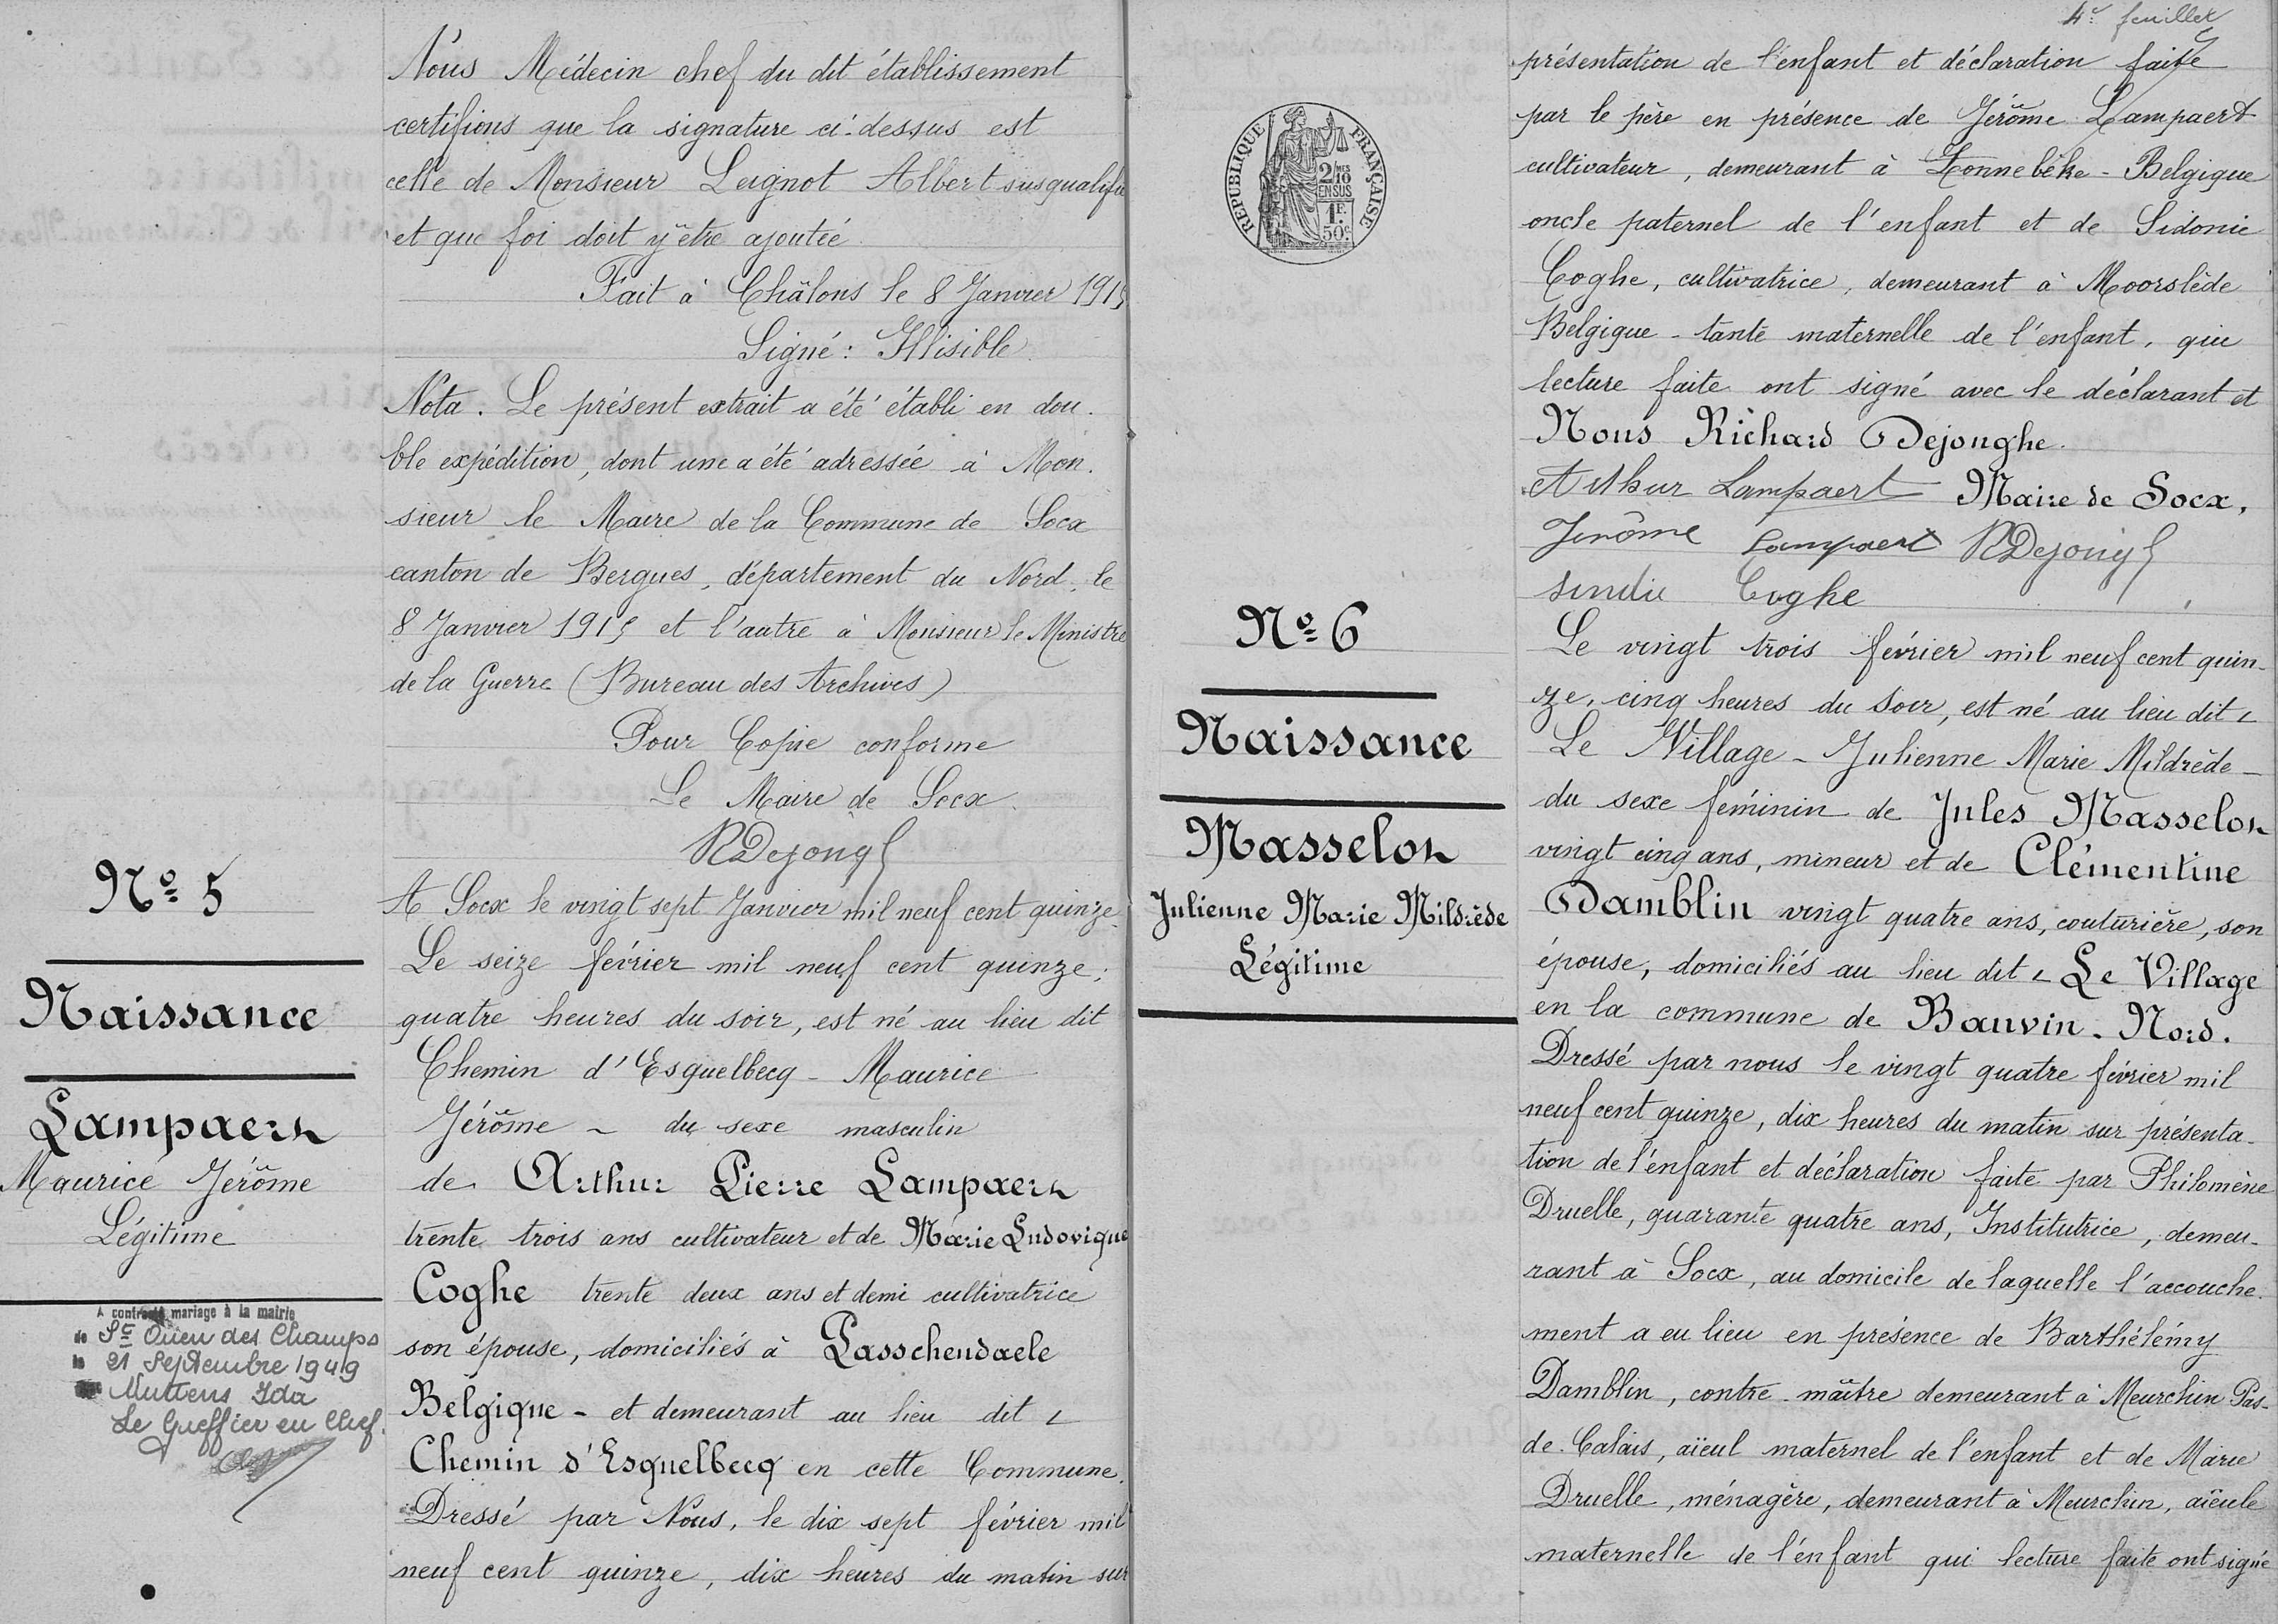 Nous Médecin chef du dit établissement
certifions que la signature ci-dessus est
celle de Monsieur Leignot Albert susqualifié
et que foi doit y être ajoutée
Fait à Châlons le 8 Janvier 1915
Signé : Illisible
Nota. Le présent extrait a été établi en dou-
ble expédition, dont une a été adressée à Mon-
sieur le Maire de la Commune de Socx
canton de Bergues, département du Nord, le
8 Janvier 1915 et l'autre à Monsieur le Ministre
de la Guerre (Bureau des Archives)
Pour Copie conforme
Le Maire de Socx
RDejongh
A Socx le vingt sept Janvier mil neuf cent quinze
N° 5
Naissance
Lampaert
Maurice Jérôme
Légitime
A contracté mariage à la mairie
de St Ouen des Champs
le 21 Septembre 1949
Muttens Ida
Le Greffier en Chef.
Le seize février mil neuf cent quinze,
quatre heures du soir, est né au lieu dit
Chemin d'Esquelbecq - Maurice
Jérôme - du sexe masculin
de Arthur Pierre Lampaert
trente trois ans cultivateur et de Marie Ludovique
Coghe trente deux ans et demi cultivatrice
son épouse, domiciliés à Passchendaele
Belgique - et demeurant au lieu dit
Chemin d'Esquelbecq en cette Commune.
Dressé par Nous, le dix sept février mil
neuf cent quinze, dix heures du matin sur
4e feuillet
présentation de l'enfant et déclaration faite
par le père en présence de Jérôme Lampaert
cultivateur, demeurant à Zonnebèke - Belgique
oncle paternel de l'enfant et de Sidonie
Coghe, cultivatrice, demeurant à Moorslède
Belgique - tante maternelle de l'enfant, qui
lecture faite ont signé avec le déclarant et
Nous Richard Dejonghe.
Arthur Lampaert Maire de Socx,
Jérôme Lampaert RDejongh
Coghe
REPUBLIQUE FRANÇAISE
2/10MES
EN SUS
1F.
50c.
N° 6
Naissance
Masselot
Julienne Marie Mildrède
Légitime
Le vingt trois février mil neuf cent quin-
ze, cinq heures du soir, est né au lieu dit
Le Village - Julienne Marie Mildrède -
du sexe féminin de Jules Masselot
vingt cinq ans, mineur et de Clémentine
Damblin vingt quatre ans, couturière, son
épouse, domiciliés au lieu dit Le Village
en la commune de Bauvin - Nord.
Dressé par nous le vingt quatre février mil
neuf cent quinze, dix heures du matin sur présenta-
tion de l'enfant et déclaration faite par Philomène
Druelle, quarante quatre ans, Institutrice, demeu-
rant à Socx, au domicile de laquelle l'accouche-
ment a eu lieu en présence de Barthélémy
Damblin, contre-maître demeurant à Meurchin Pas-
de-Calais, aïeul maternel de l'enfant et de Marie
Druelle, ménagère, demeurant à Meurchin, aïeule
maternelle de l'enfant qui lecture faite ont signé